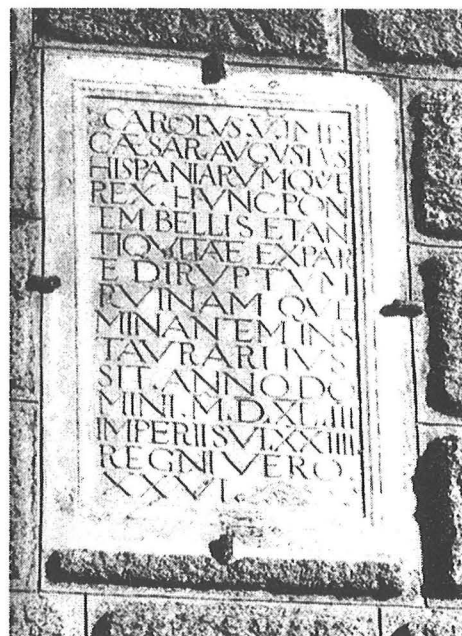 CAROLVS.V.IMP.
CÆSAR.AVGVSTVS
HISPANIARVMQVE
REX.HVNC PON
EM BELLIS ET AN
TIQVITAE EX PAR
E DIRVPTVM
RVINAM QVE
MINANEM INS
TAVRARI IVS
SIT.ANNO DO
MINI.M.D.XLIII
IMPERII SVI.XXIIII.
REGNI VERO
XXVI.